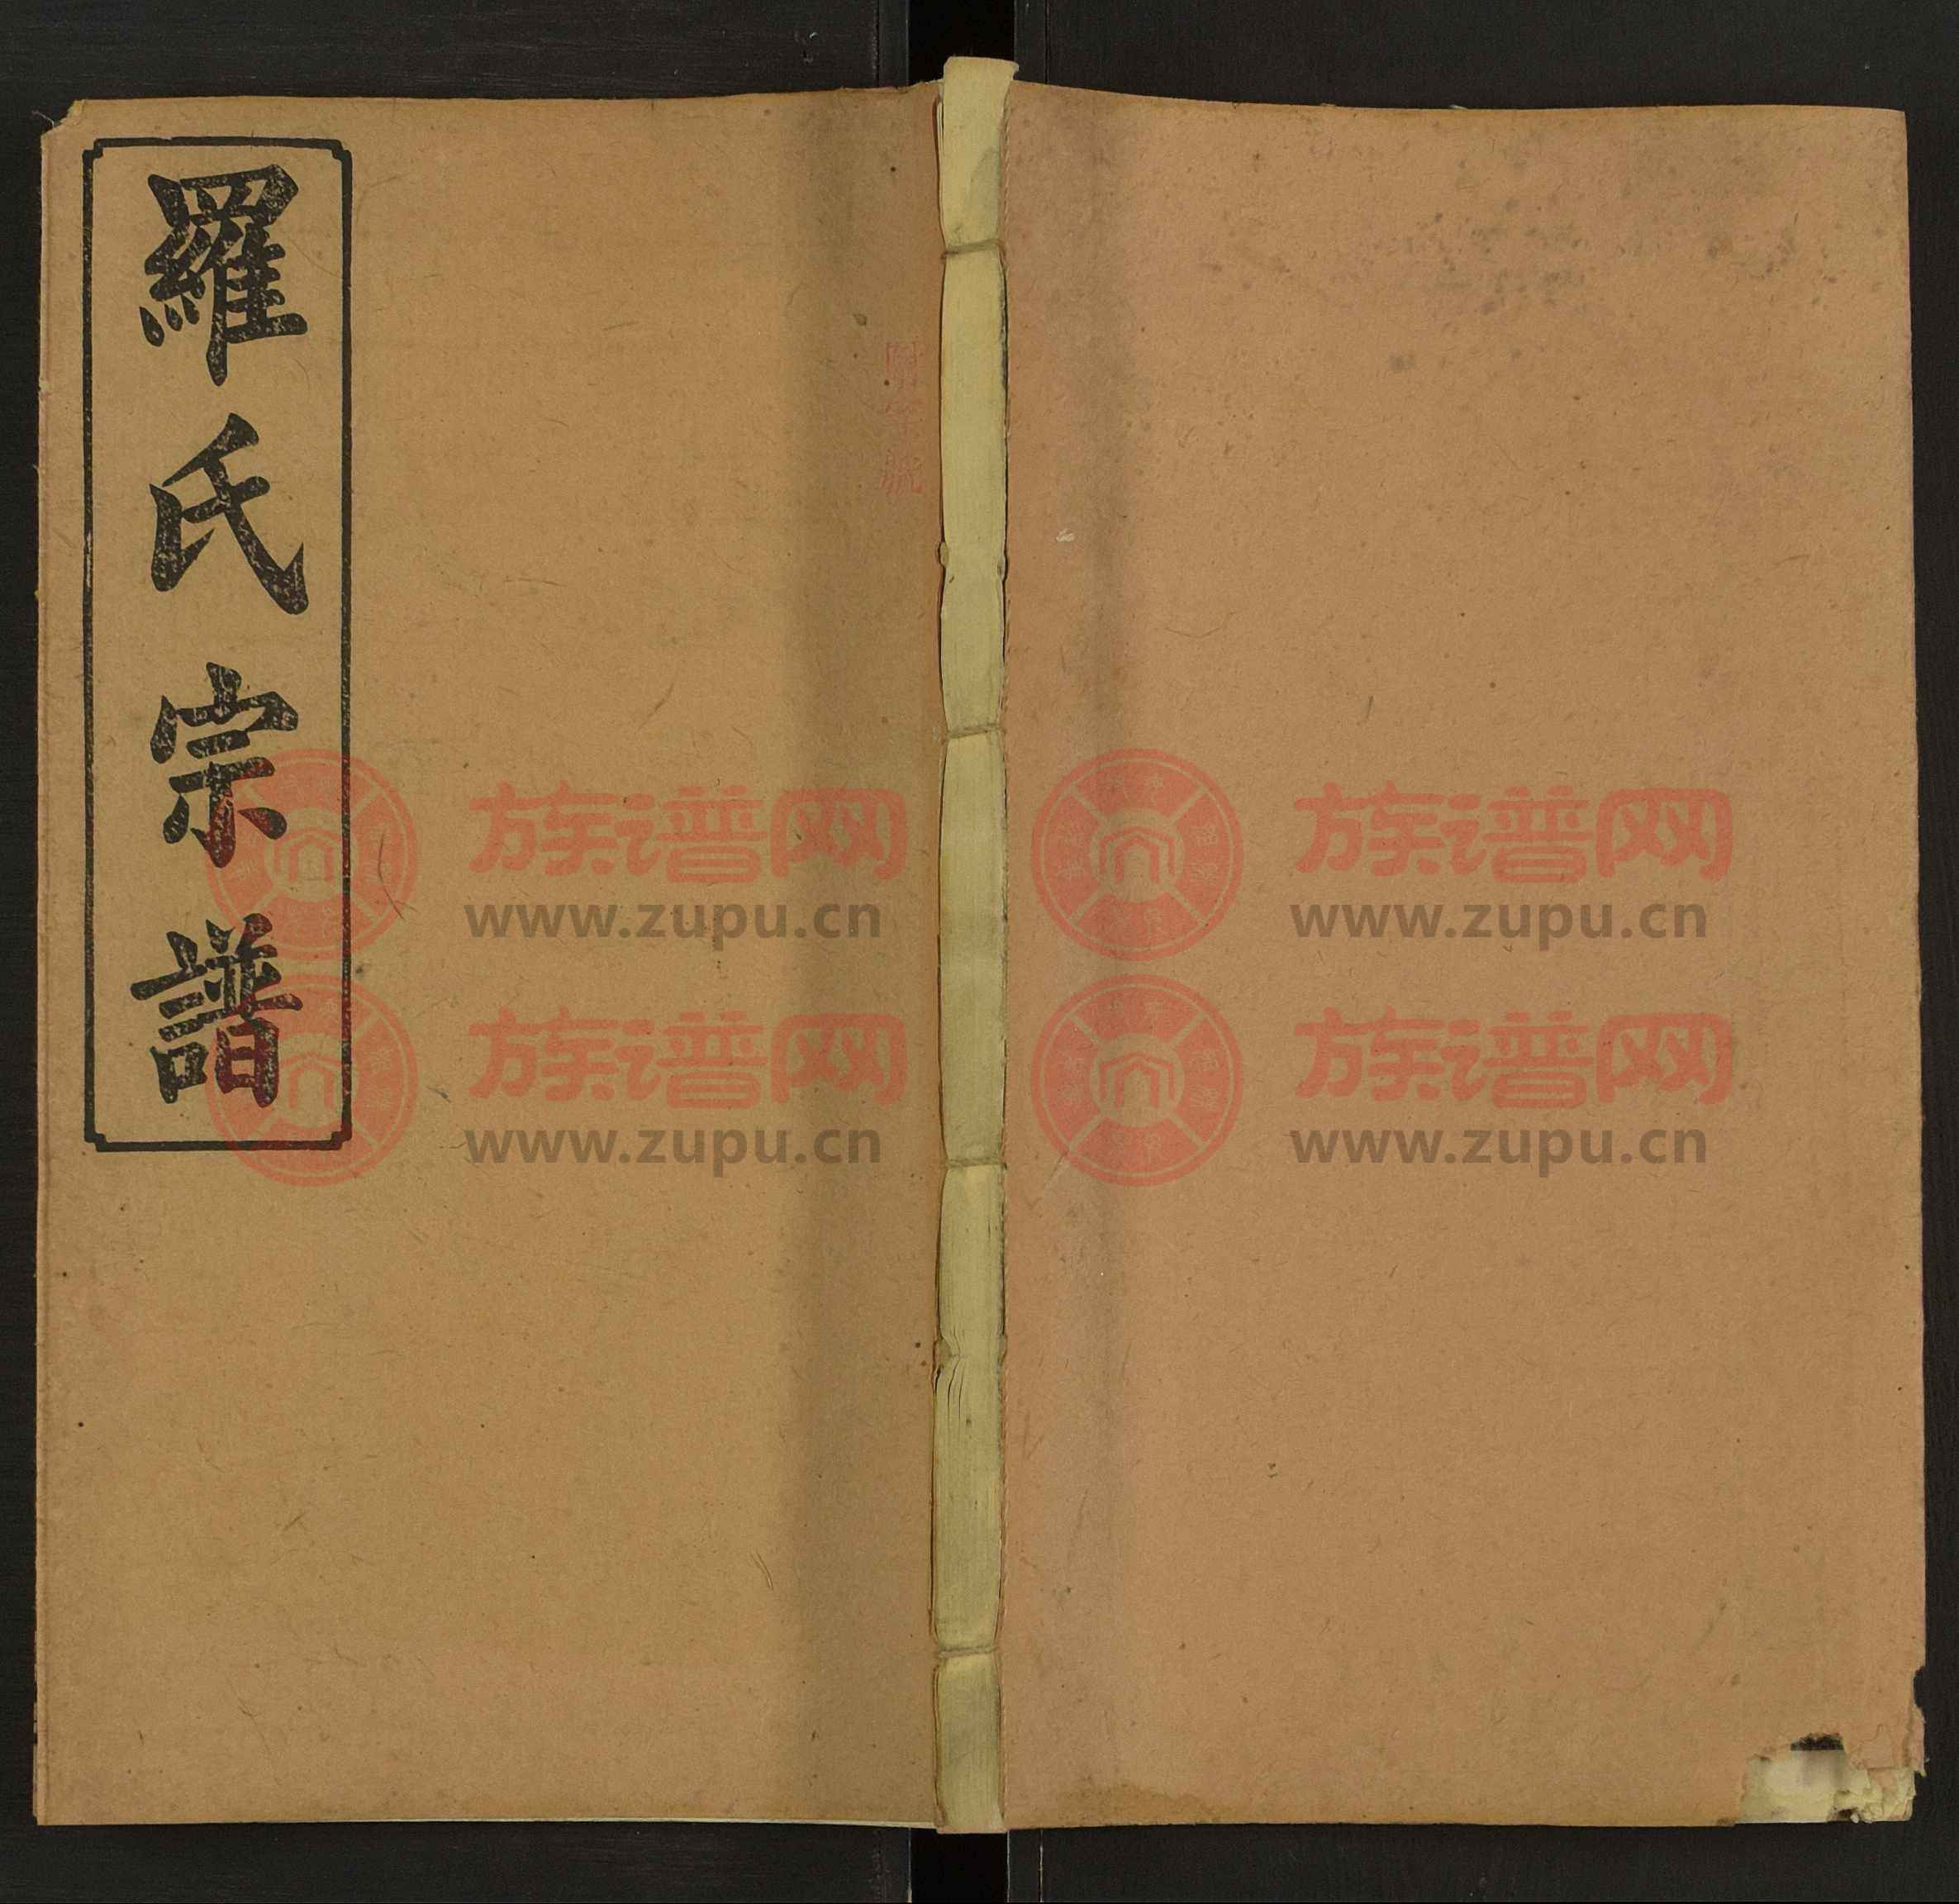 羅氏宗譜
族谱网
www.zupu.cn
族谱网
www.zupu.cn
族谱网
www.zupu.cn
族谱网
www.zupu.cn